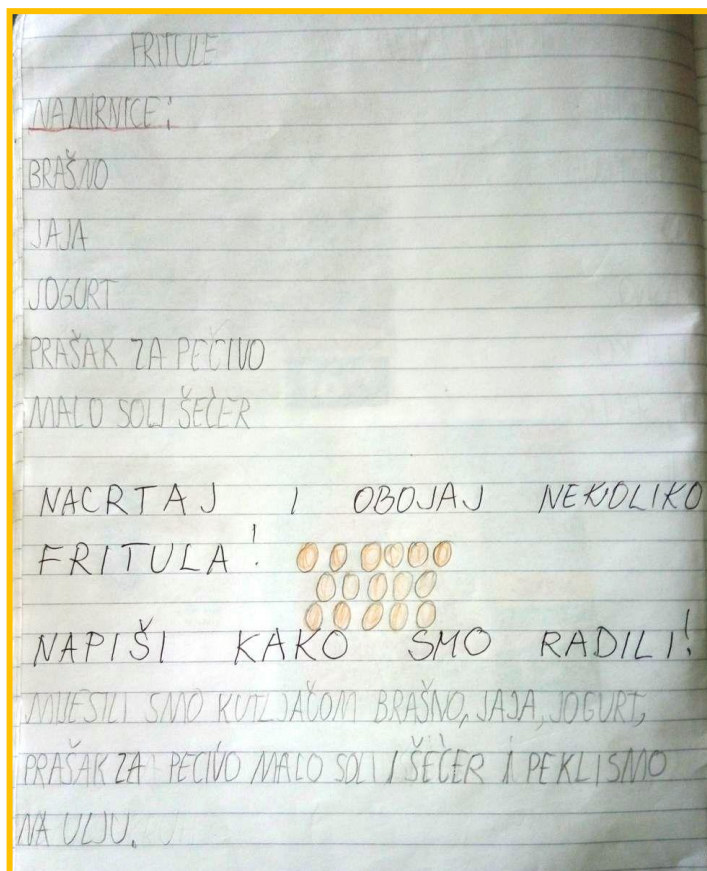 FRITULE
NAMIRNICE:
BRAŠNO
JAJA
JOGURT
PRAŠAK ZA PEČIVO
MALO SOLI ŠEČER
NACRTAJ I OBOJAJ NEKOLIKO
FRITULA!
NAPIŠI KAKO SMO RADILI!
MIJEŠILI SMO KUTLJAČOM BRAŠNO, JAJA, JOGURT,
PRAŠAK ZA PECIVO MALO SOLI I ŠEČER I PEKLI SMO
NA ULJU.